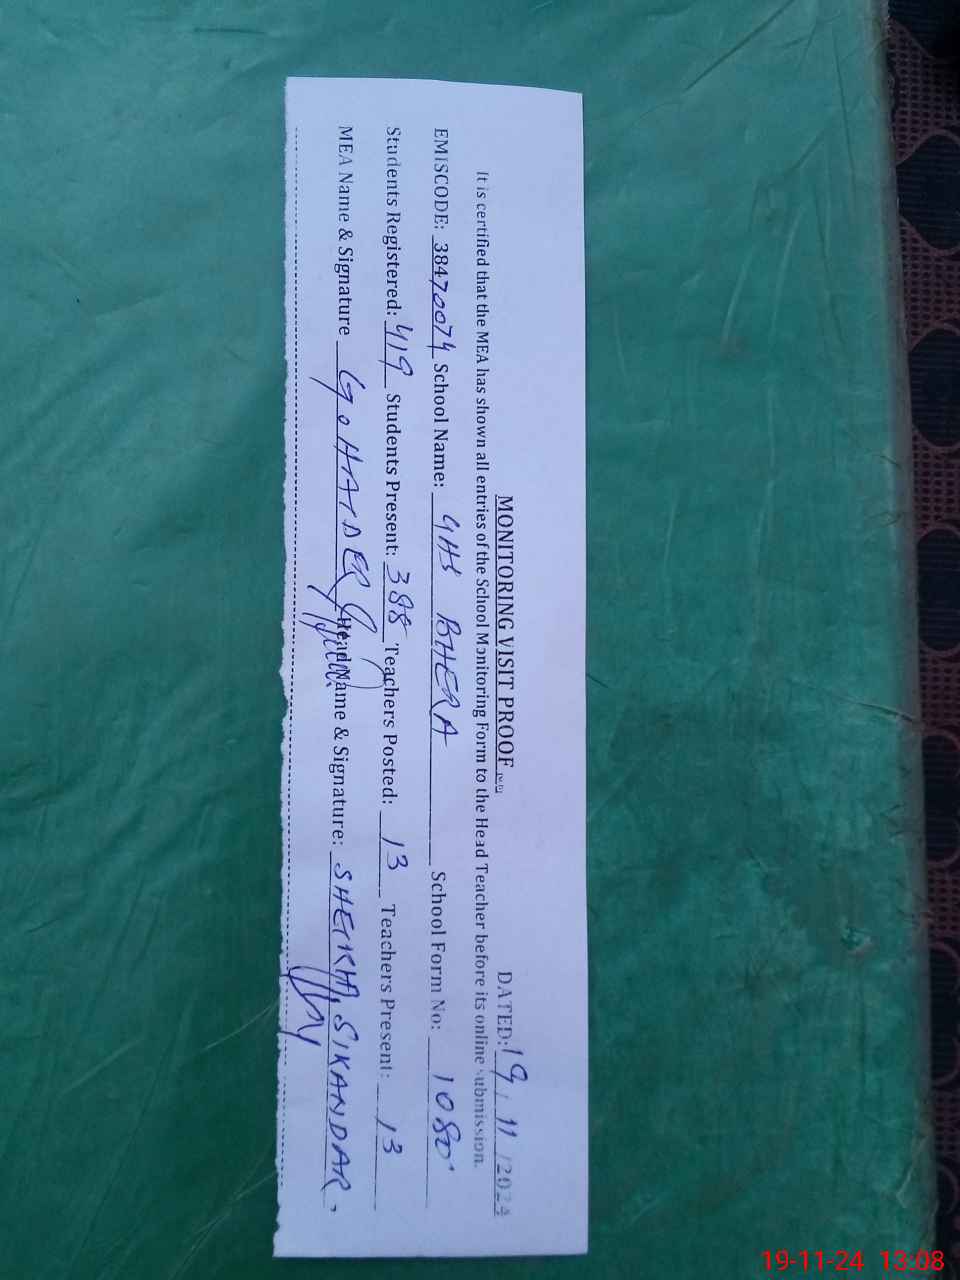 MONITORING VISIT PROOF DATED: 19/11/2024
It is certified that the MEA has shown all entries of the School Monitoring Form to the Head Teacher before its online submission.
EMISCODE: 38470074 School Name: GHS BHERA School Form No: 1080
Students Registered: 419 Students Present: 388 Teachers Posted: 13 Teachers Present: 13
MEA Name & Signature G. HAIDER Head Name & Signature: SHEIKH, SIKANDAR
19-11-24 13:08